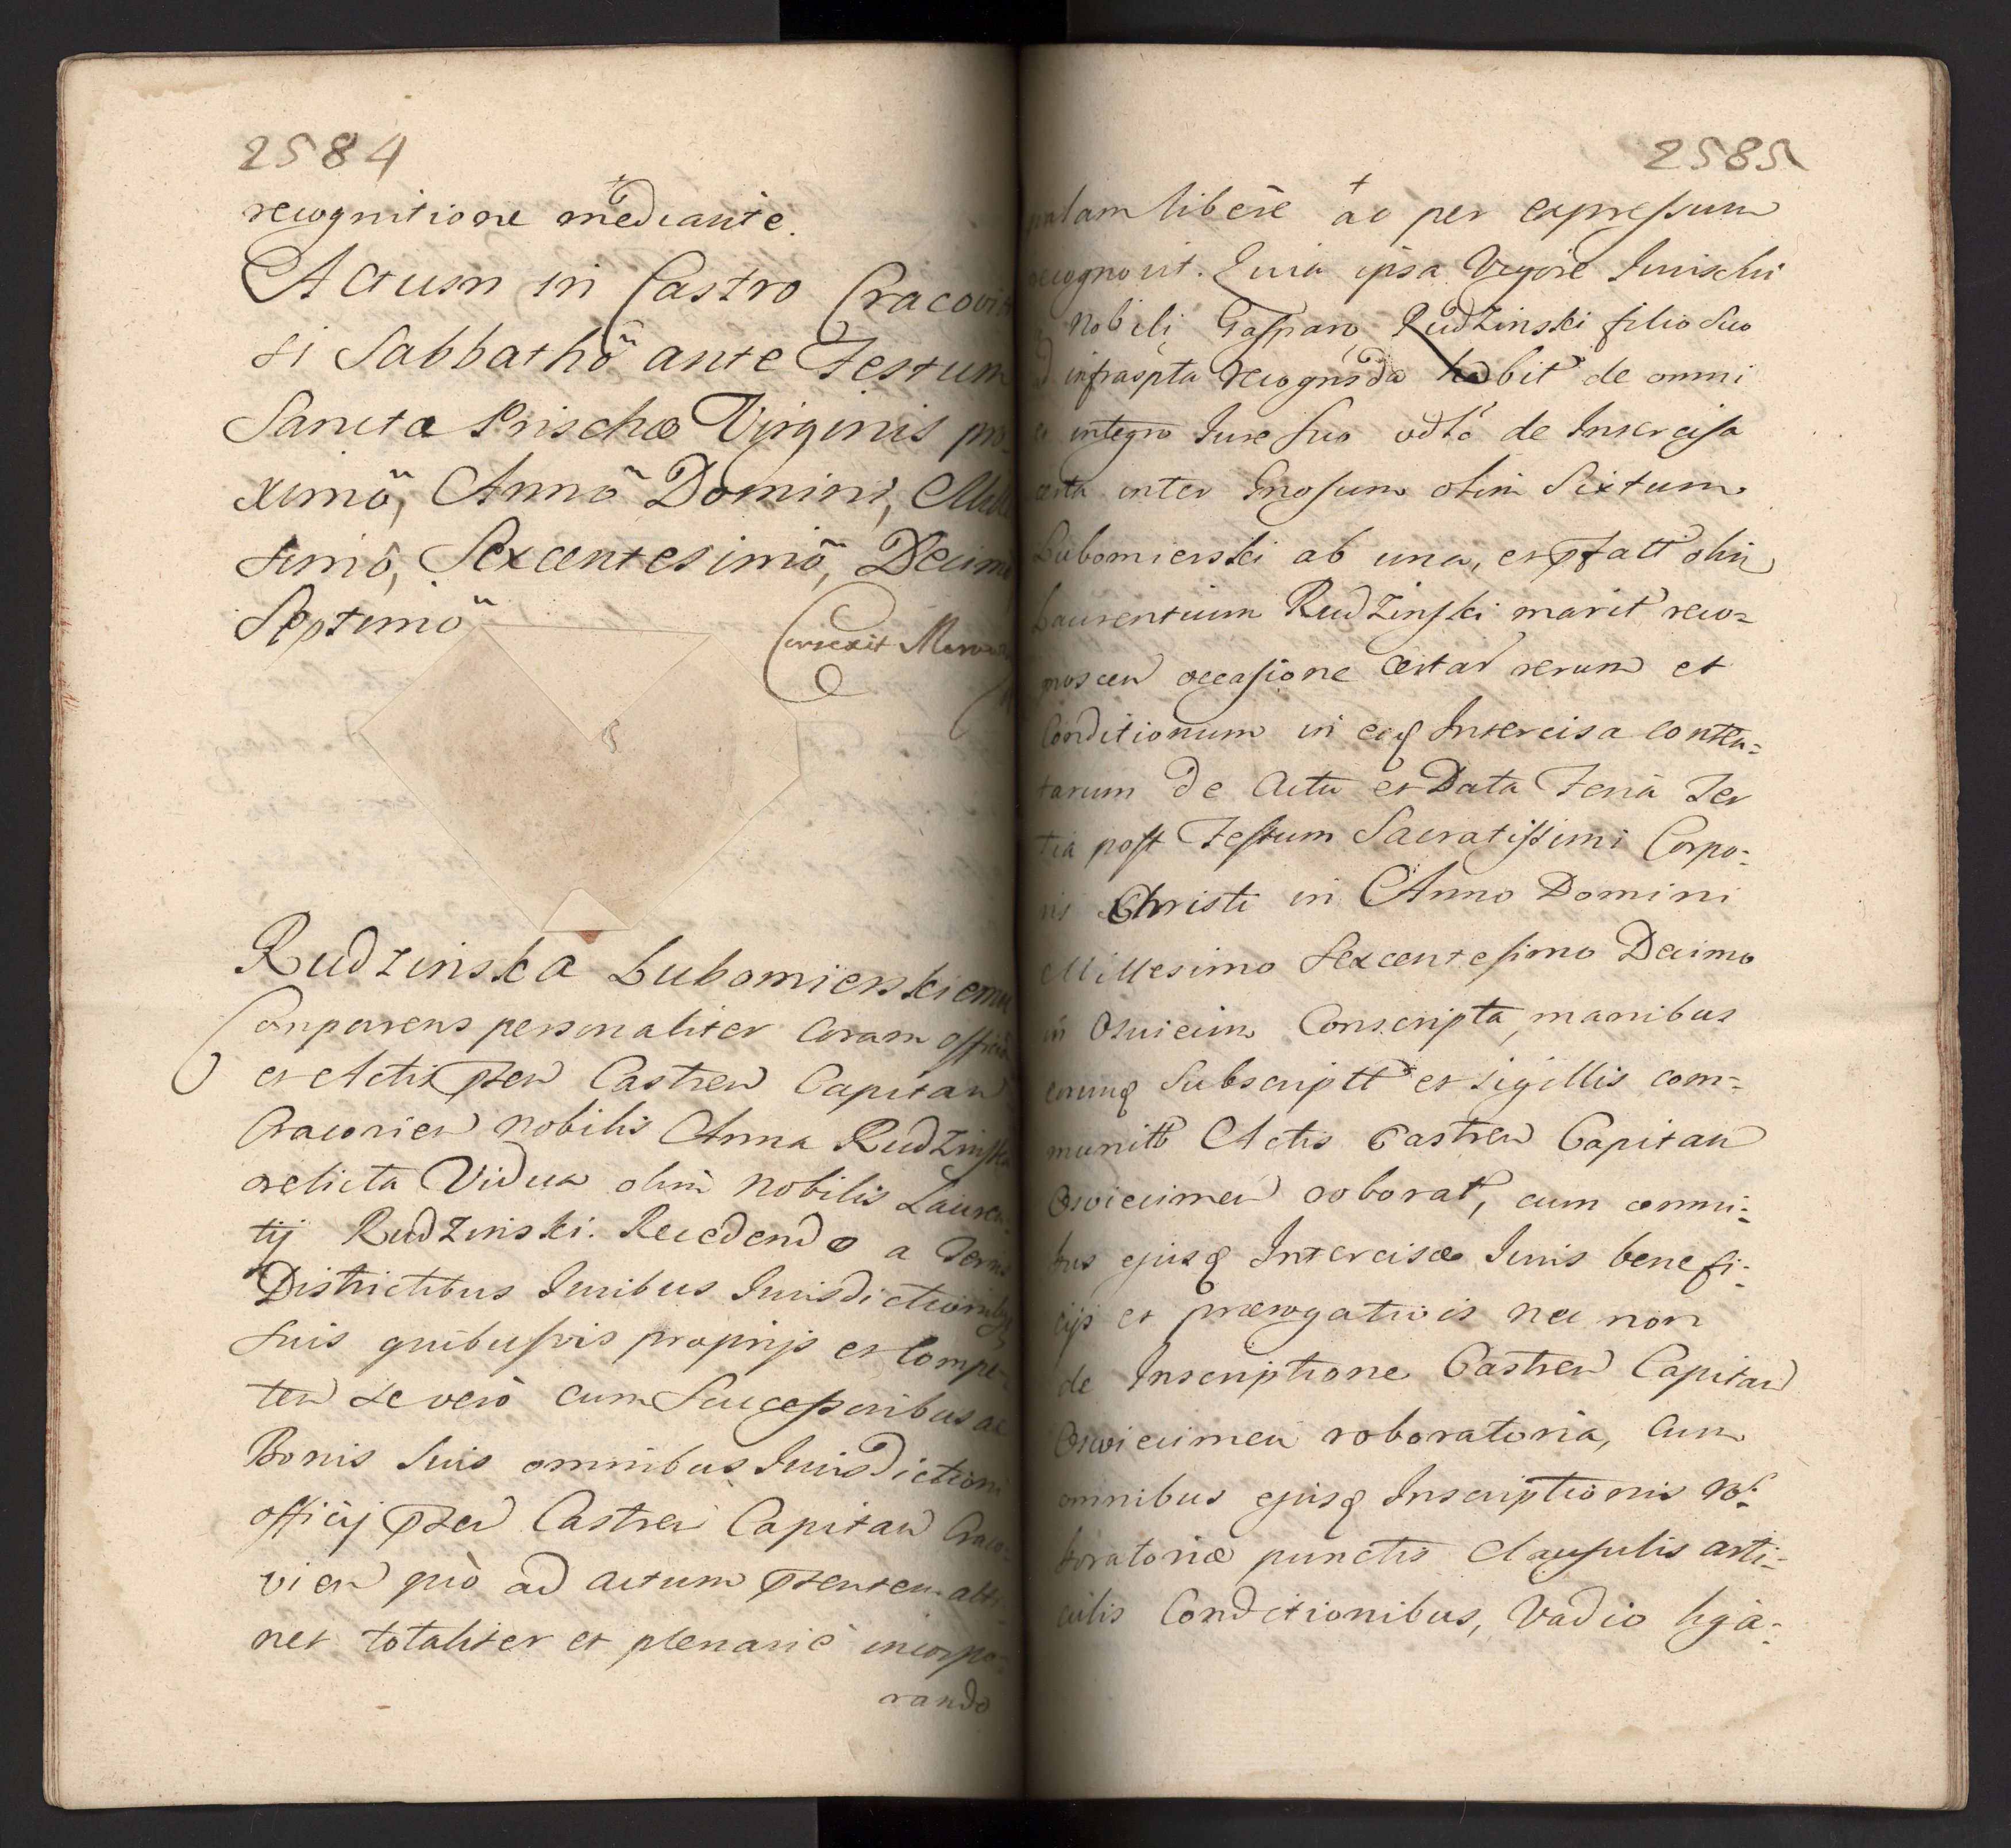 2584
recognitione mediante.
Actum in Castro Cracovi
si Sabbathô ante Festum
Sanctæ Prischæ Virginis pro
ximô, Annô Domini, Mille
simô, Sexcentesimô, Decimô
Septimô
Correxit
Rudzinska Lubomierskiemu
Comparens personaliter Coram officio
et Actis pten Castren Capitan
Cracovien nobilis Anna Rudzinska
relicta Vidua olim nobilis Lauren
tij Rudzinski. Recedendo a Terris
Districtibus Iuribus Iurisdictionibq
suis quibusvis proprijs et Compe=
ten se verò cum Successoribus ac
Bonis suis omnibus Iurisdictioni
officij pten Castren Capitan Craco=
vien quò ad actum ptentem atti
net totaliter et plenariè incorpo=
rando
2585
palam liberè ac per expressum
recognovit. Quia ipsa Vigore Iuris sibi
Nobili Gasparo Rudzinski filio suo
infraspta recognsda habit de omni
et integro Iure suo de Intercisa
certa inter Gnosum olim Sixtum
Lubomierski ab una, et ptatt olim
Laurentium Rudzinski marit reco=
noscen occasione certar rerum et
Conditionum in eaq Intercisa conten=
tarum De Actu et Data Feria Ter
tia post Festum Sacratissimi Corpo=
ris Christi in Anno Domini
Millesimo Sexcentesimo Decimo
in Osuiecim Conscripta, manibus
eorumq Subscriptt et sigillis com=
munitt Actis Castren Capitan
Oswiecimen roborat, cum omni=
bus ejusq Intercisæ Iuris benefi=
cijs et prærogativis nec non
de Inscriptione Castren Capitan
Oswiecimen roboratoria, cum
omnibus ejusq Inscriptionis ro=
boratoriæ punctis clausulis arti=
culis Conditionibus, Vadio liga=